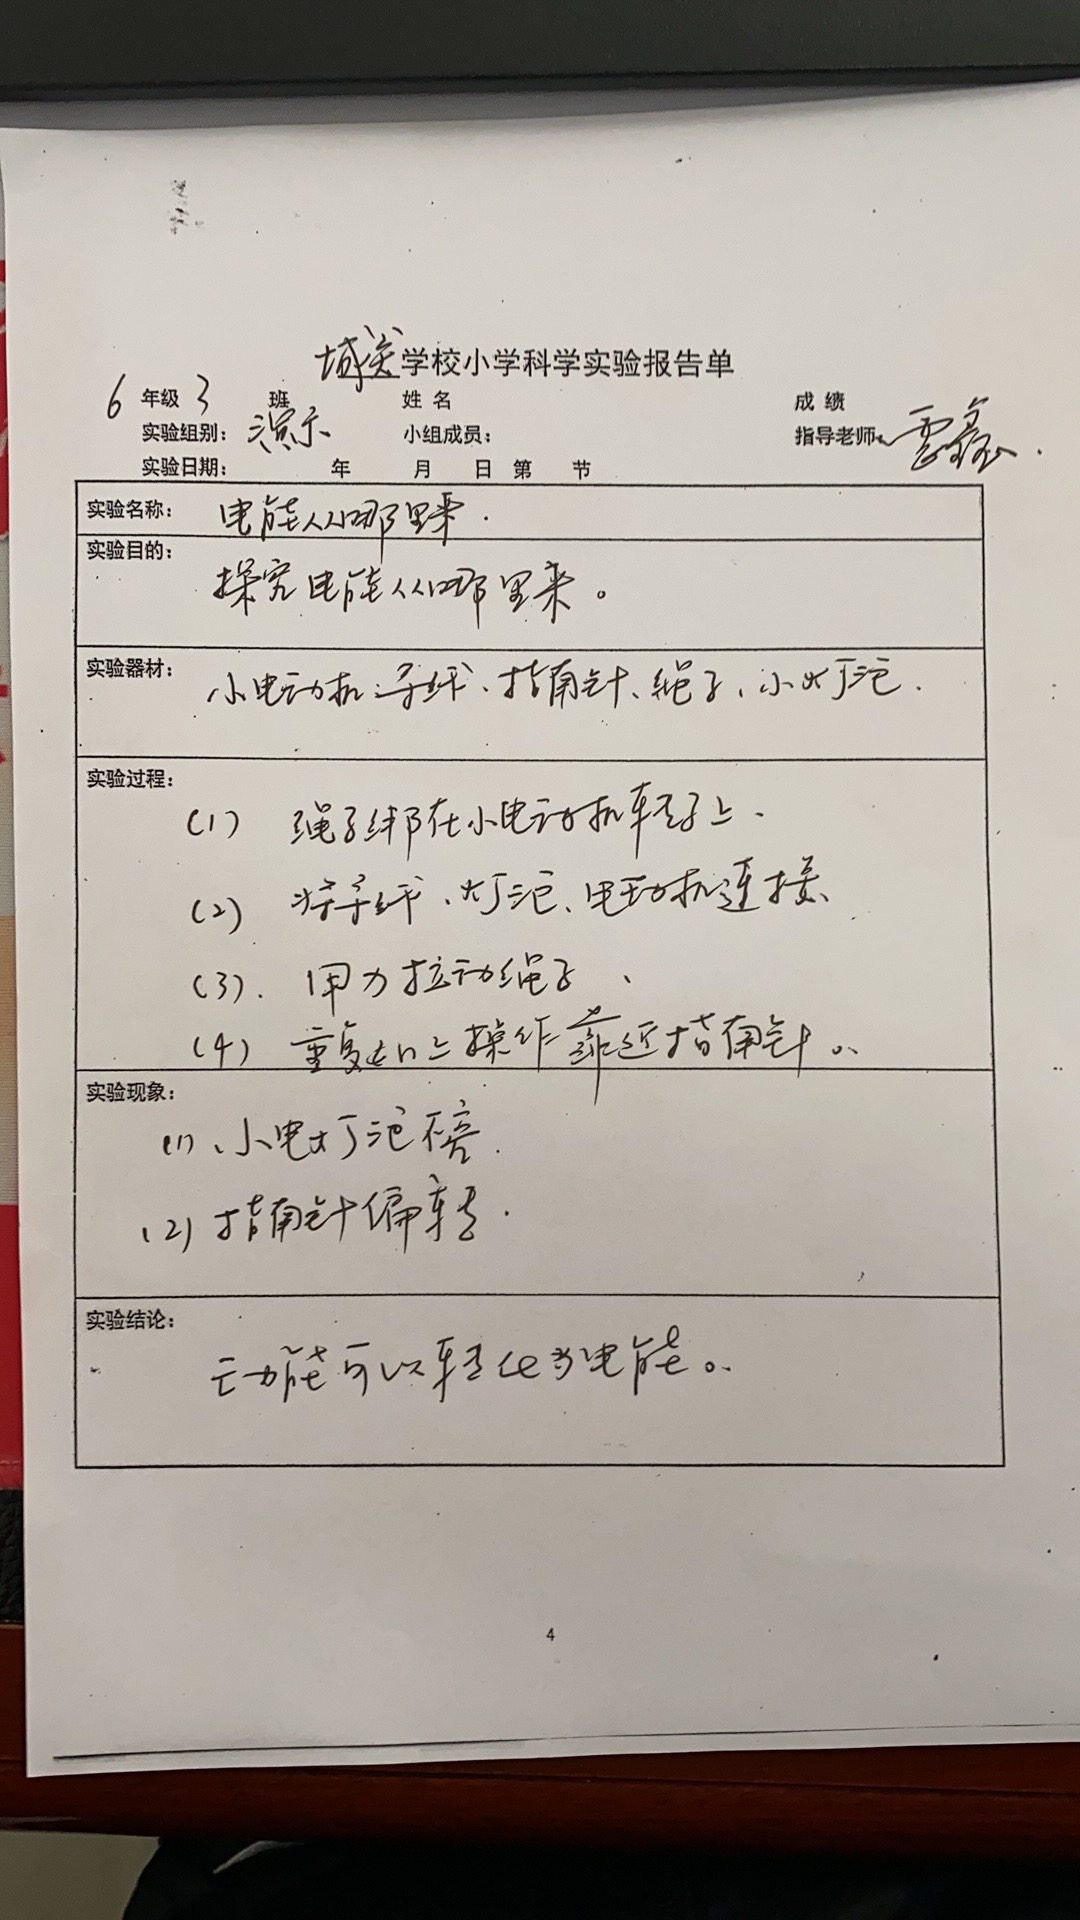 城关学校小学科学实验报告单
6 年级 3 班 姓 名 成 绩
实验组别： 演示 小组成员： 指导老师： 雷鑫.
实验日期： 年 月 日 第 节
实验名称： 电能从哪里来.
实验目的：
探究电能从哪里来。
实验器材：
小电动机、导线、指南针、绳子、小灯泡.
实验过程：
(1) 绳子绑在小电动机转子上.
(2) 将导线、灯泡、电动机连接
(3). 用力拉动绳子、
(4) 重复以上操作靠近指南针。
实验现象：
(1)、小电灯泡不亮.
(2) 指南针偏转.
实验结论：
动能可以转化为电能。
4